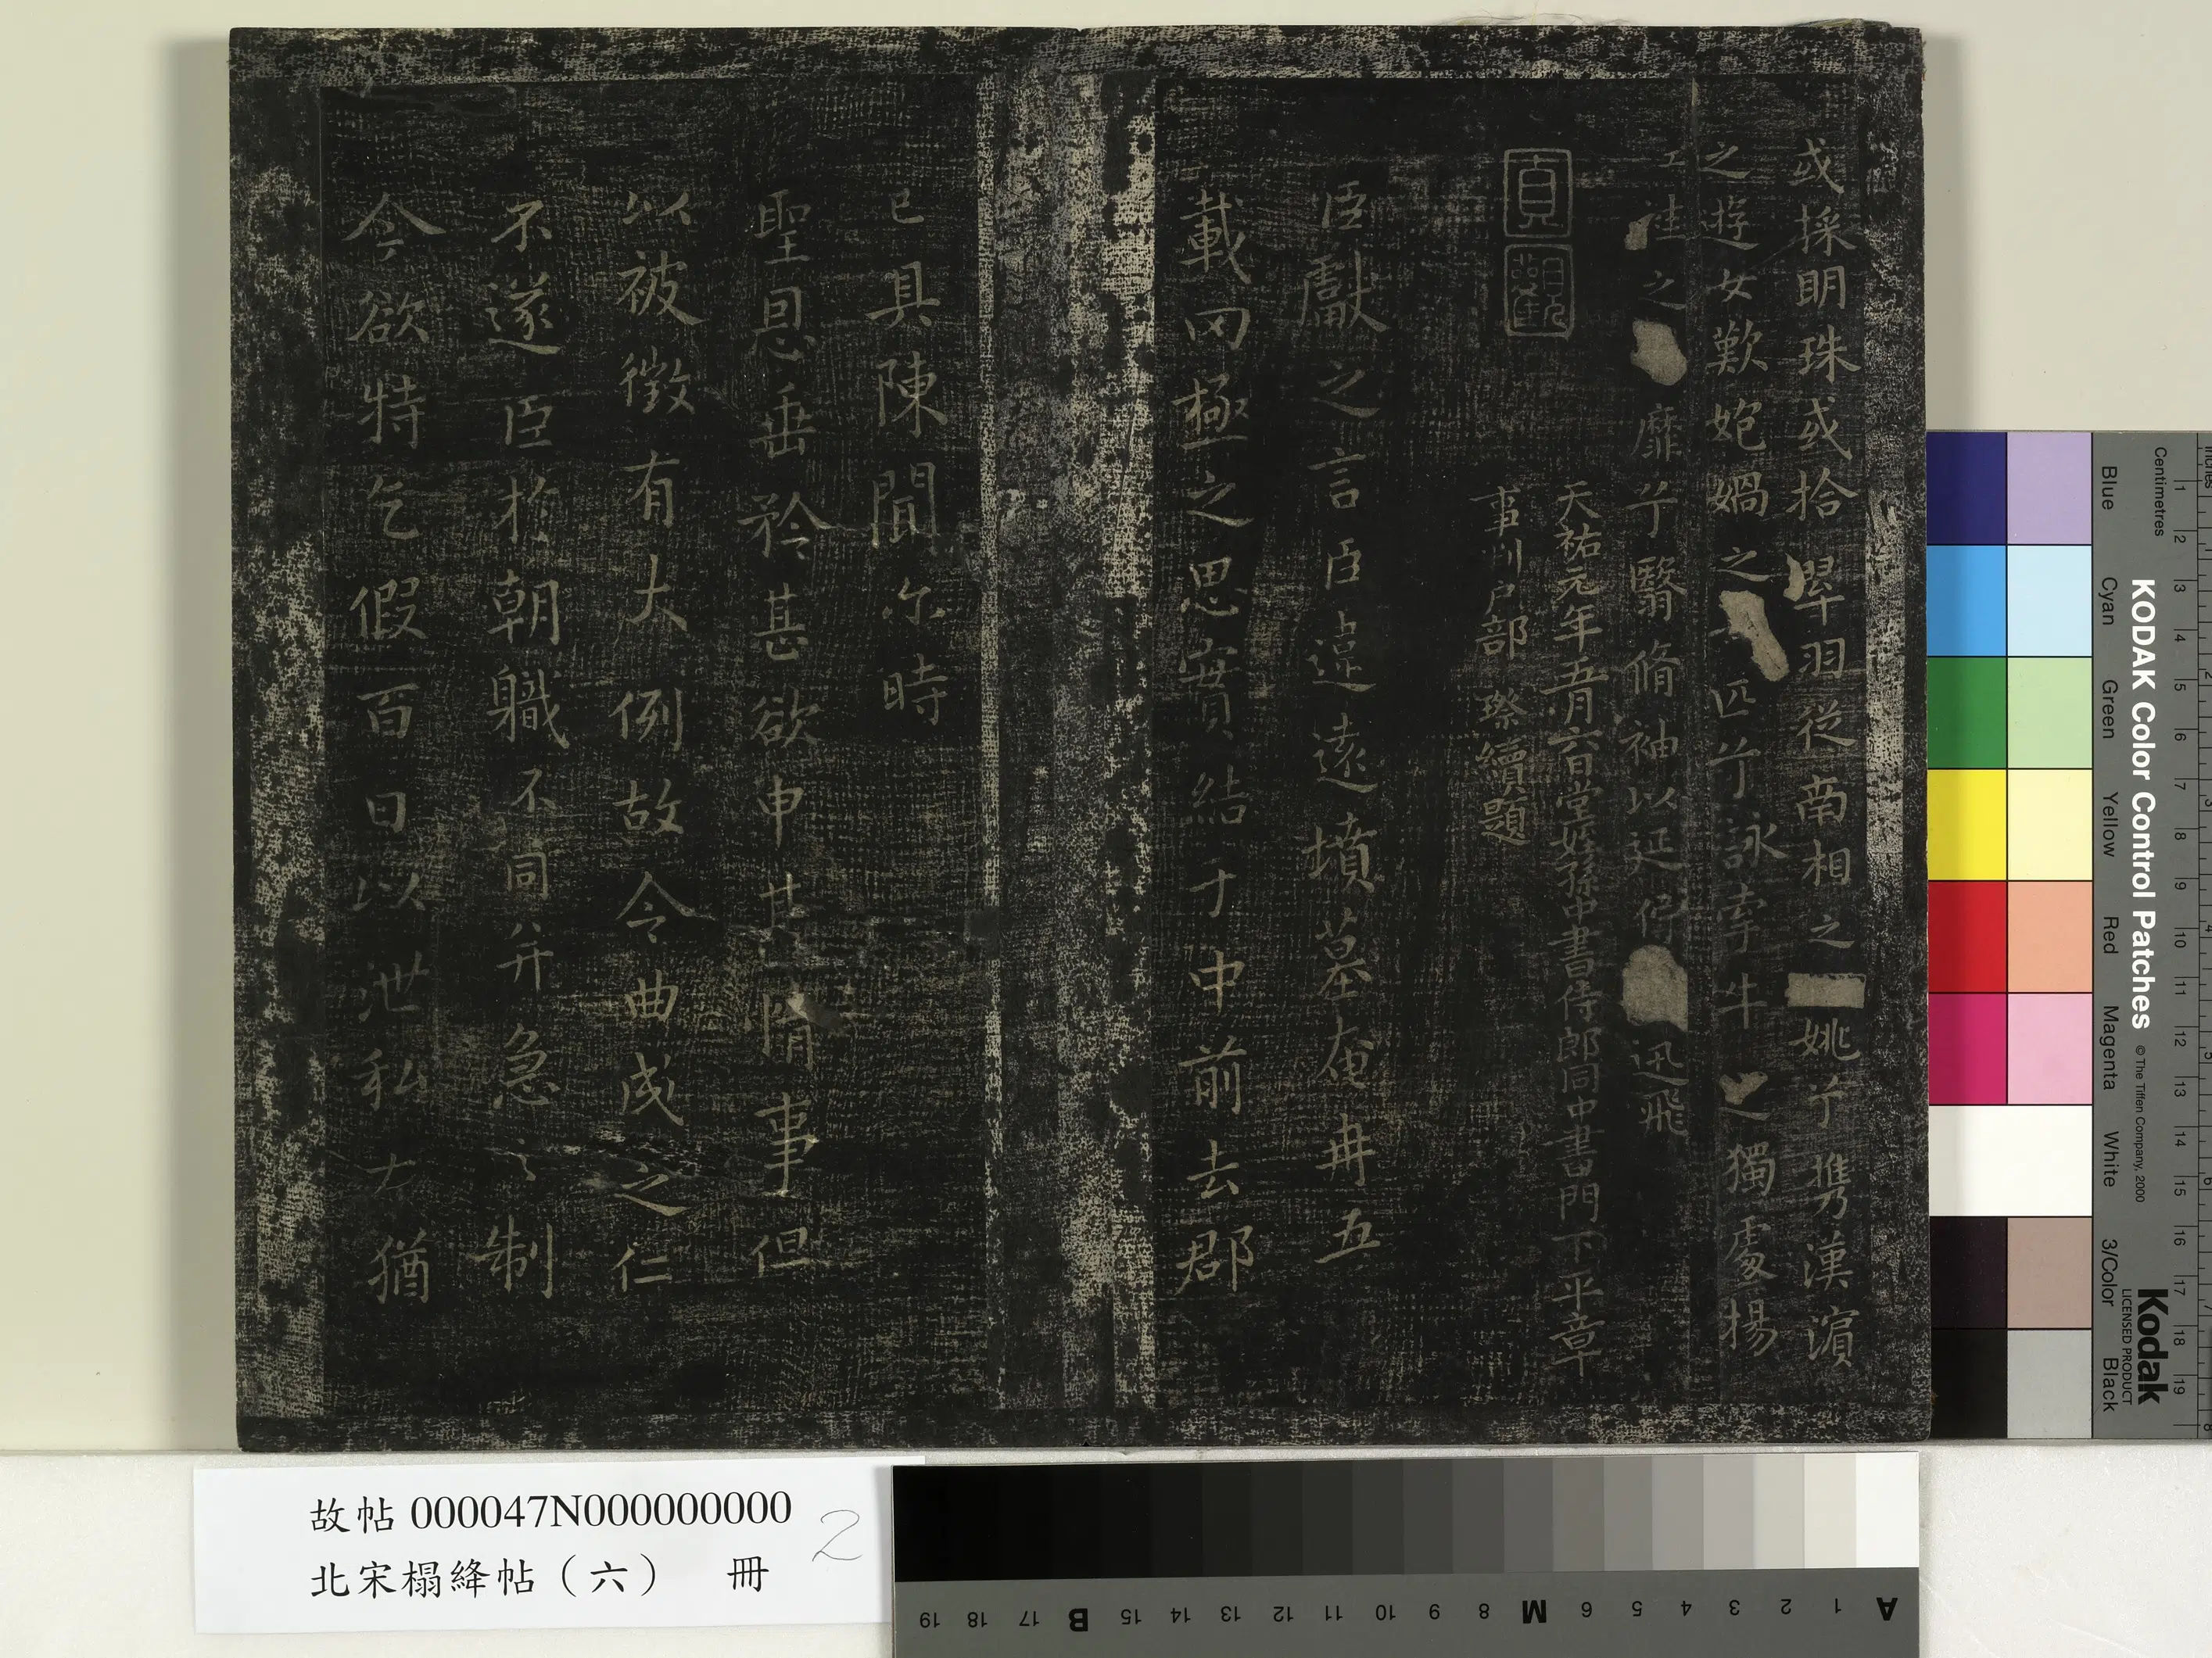 或採明珠或拾翠羽從南相之姚兮攜漢濵
之遊女歎匏媧之匹兮詠牽牛之獨處揚
之靡兮翳脩袖以延佇迅飛
貞觀
天祐元年五月六日堂姪孫中書侍郎同中書門下平章
事判户部璨續題
臣獻之言臣違遠墳墓奄冉五
載罔極之思實結于中前去郡
已具陳聞尔時
聖恩垂矜甚欲申其情事但
以被徵有大例故令曲成之仁
不遂臣於朝職不同并急之制
今欲特乞假百日以泄私大猶
故帖000047N000000000 2
北宋榻絳帖（六） 冊
KODAK Color Control Patches © The Tiffen Company, 2000
Kodak
LICENSED PRODUCT
Centimetres 1 2 3 4 5 6 7 8 9 10 11 12 13 14 15 16 17 18 19
Blue Cyan Green Yellow Red Magenta White 3/Color Black
A 1 2 3 4 5 6 M 8 9 10 11 12 13 14 15 B 17 18 19